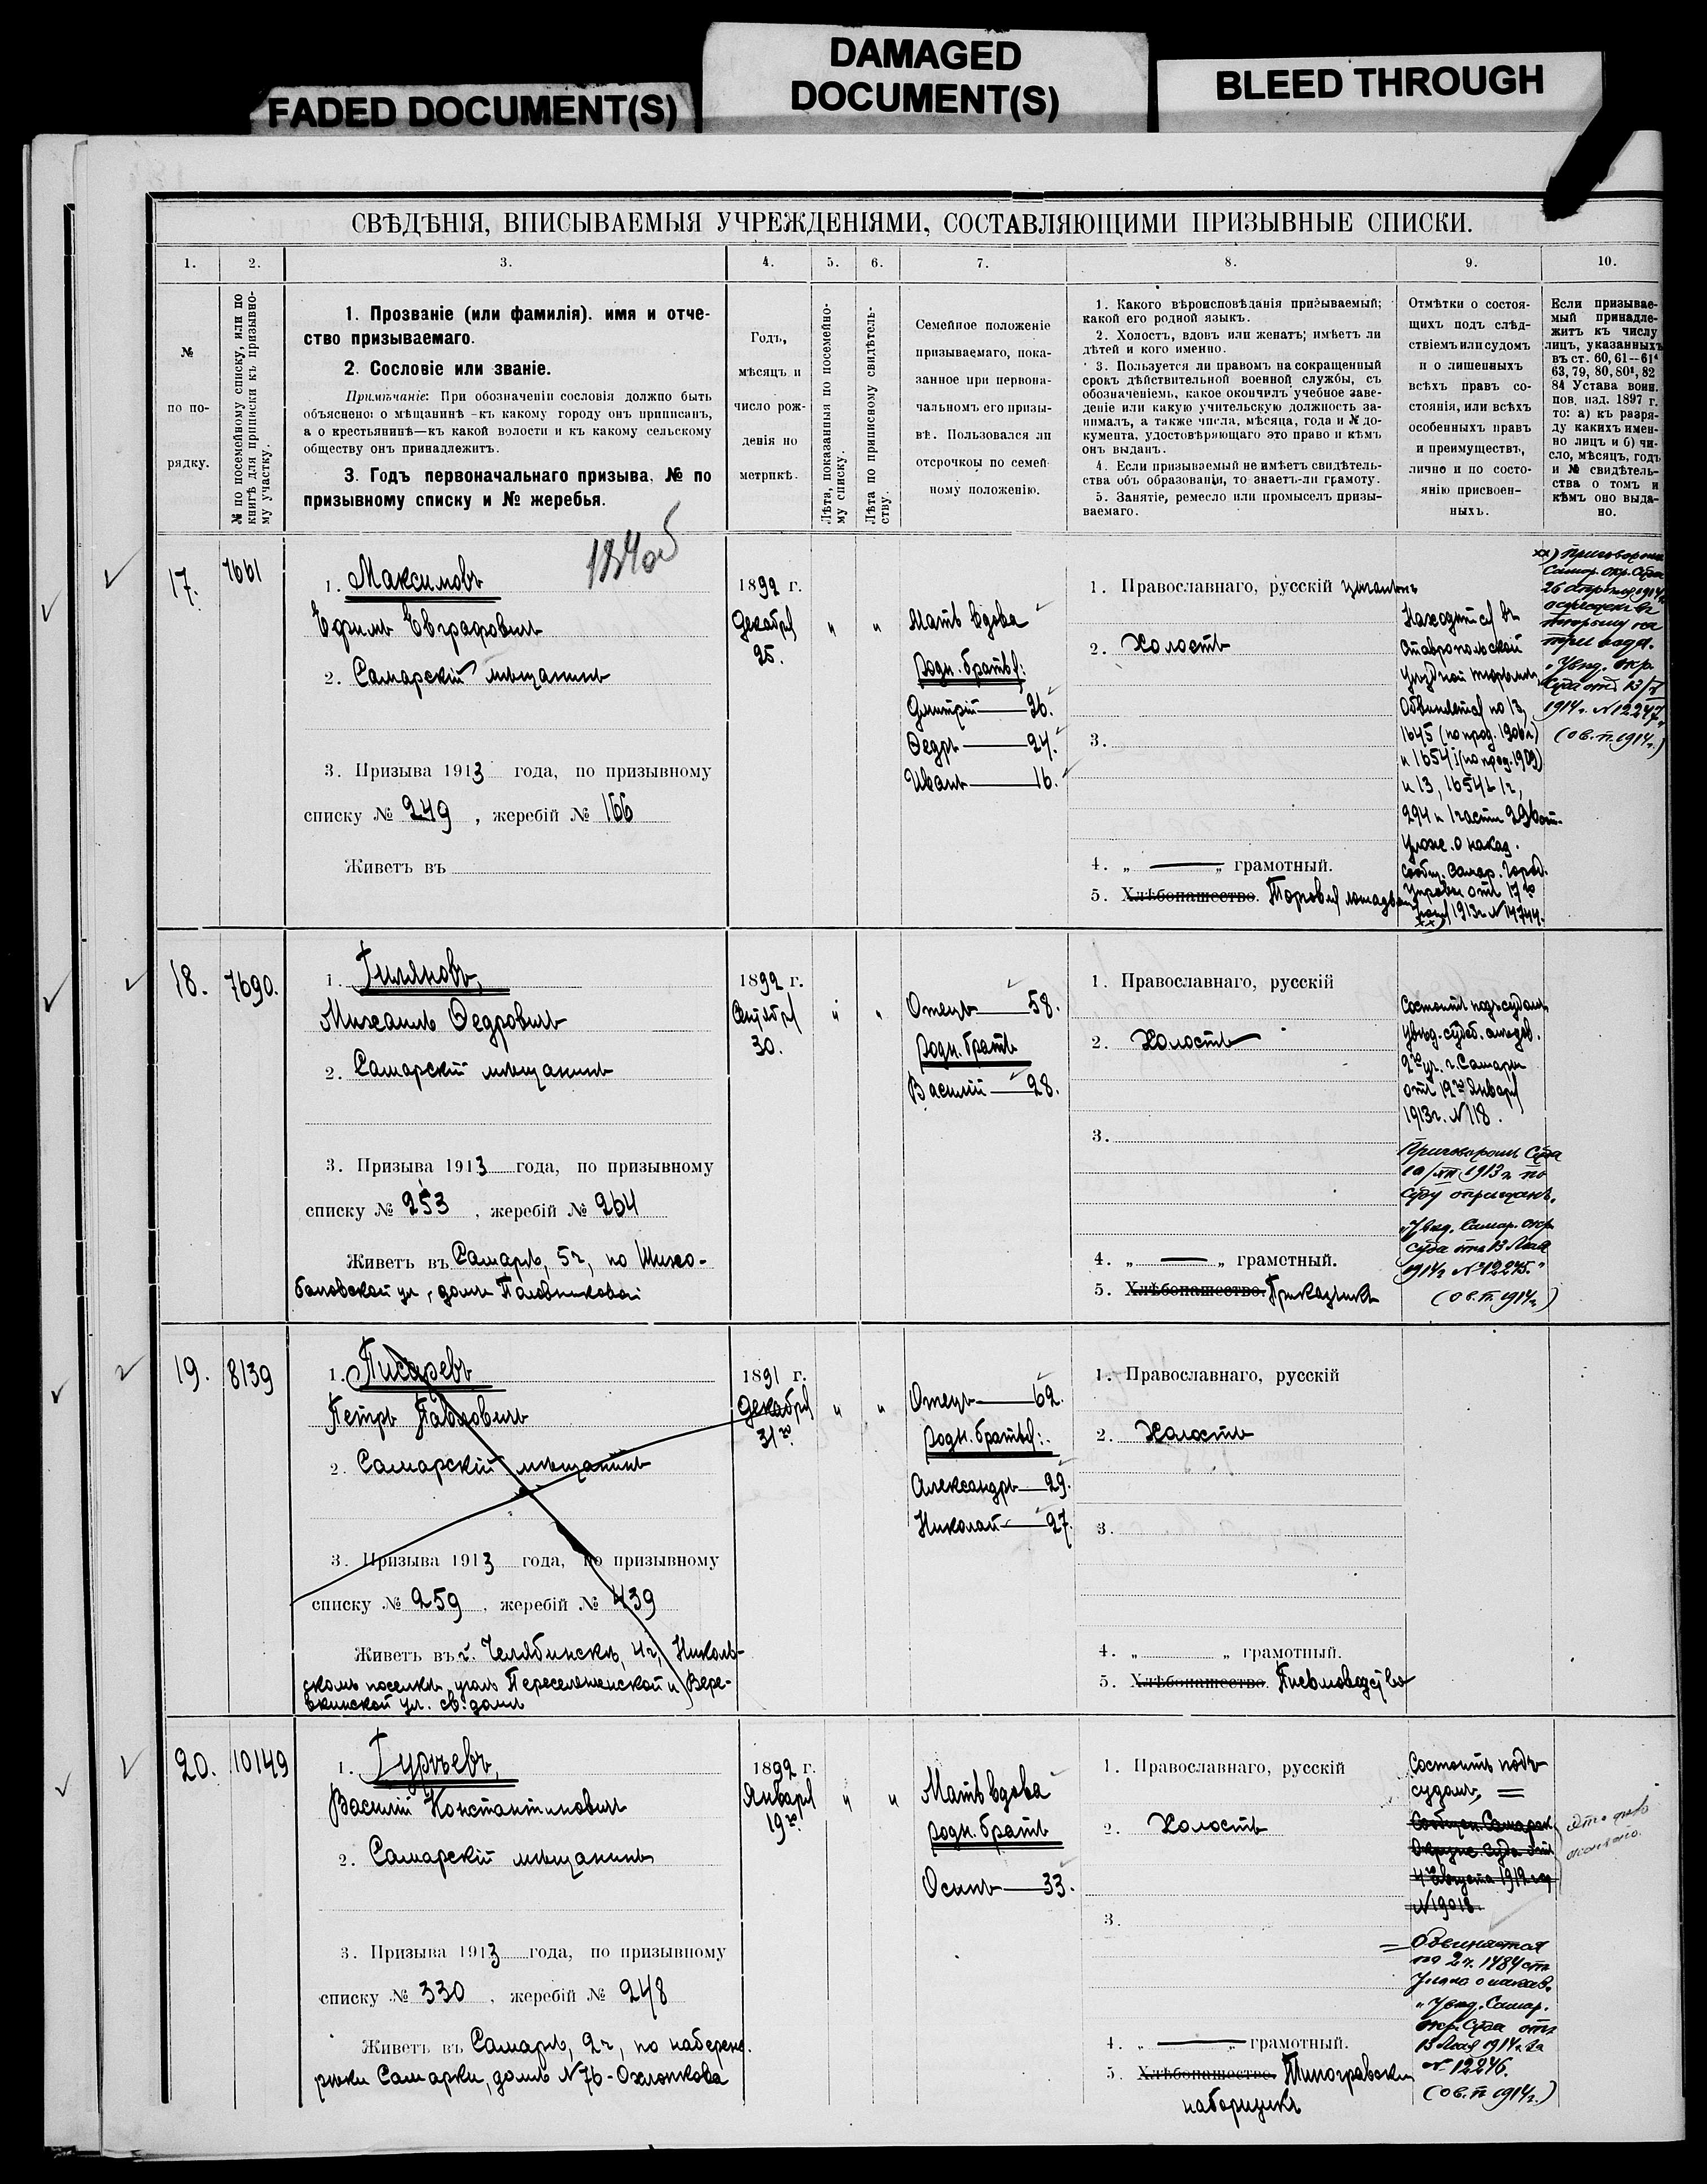 FADED DOCUMENT(S)
DAMAGED
DOCUMENT(S)
BLEED THROUGH
СВѢДѢНІЯ, ВПИСЫВАЕМЫЯ УЧРЕЖДЕНІЯМИ, СОСТАВЛЯЮЩИМИ ПРИЗЫВНЫЕ СПИСКИ.
1.
2.
3.
4.
5.
6.
7.
8.
9.
10.
№
по по-
рядку.
№ по посемейному списку, или по
книгѣ для приписки къ призывно-
му участку.
1. Прозваніе (или фамилія). имя и отче-
ство призываемаго.
2. Сословіе или званіе.
Примѣчаніе: При обозначеніи сословія должно быть
объяснено: о мѣщанинѣ -къ какому городу онъ приписанъ,
а о крестьянинѣ—къ какой волости и къ какому сельскому
обществу онъ принадлежитъ.
3. Годъ первоначальнаго призыва, № по
призывному списку и № жеребья.
Годъ,
мѣсяцъ и
число рож-
денія по
метрикѣ.
Лѣта, показанныя по посемейно-
му списку.
Лѣта по приписному свидѣтель-
ству.
Семейное положеніе
призываемаго, пока-
занное при первона-
чальномъ его призы-
вѣ. Пользовался ли
отсрочкою по семей-
ному положенію.
1. Какого вѣроисповѣданія призываемый;
какой его родной языкъ.
2. Холостъ, вдовъ или женатъ; имѣетъ ли
дѣтей и кого именно.
3. Пользуется ли правомъ на сокращенный
срокъ дѣйствительной военной службы, съ
обозначеніемъ, какое окончилъ учебное заве-
деніе или какую учительскую должность за-
нималъ, а также числа, мѣсяца, года и № до-
кумента, удостовѣряющаго это право и кѣмъ
онъ выданъ.
4. Если призываемый не имѣетъ свидѣтель-
ства объ образованіи, то знаетъ-ли грамоту.
5. Занятіе, ремесло или промыселъ призы-
ваемаго.
Отмѣтки о состоя-
щихъ подъ слѣд-
ствіемъ или судомъ
и о лишенныхъ
всѣхъ правъ со-
стоянія, или всѣхъ
особенныхъ правъ
и преимуществъ,
лично и по состо-
янію присвоен-
ныхъ.
Если призывае-
мый принадле-
житъ къ числу
лицъ, указанныхъ
въ ст. 60, 61—61⁴
63, 79, 80, 80¹, 82
84 Устава воин.
пов. изд. 1897 г.
то: а) къ разря-
ду какихъ имен-
но лицъ и б) чи-
сло, мѣсяцъ, годъ
и № свидѣтель-
ства о томъ и
кѣмъ оно выда-
но.
17.
7661
1. Максимовъ
Ефимъ Евграфовичъ
2. Самарскій мѣщанинъ
3. Призыва 1913 года, по призывному
списку № 249, жеребій № 166
Живетъ въ
1892 г.
Декабря
25.
" "
Мать вдова
родн. братья:
Дмитрій — 26.
Ѳедръ — 24.
Иванъ — 16.
1. Православнаго, русскій цыганъ
2. Холостъ
3.
4. " — " грамотный.
5. Хлѣбопашество. Торговля лошадьми
Находится въ
Ставропольской
уѣздной тюрьмѣ
Обвиняется по 13,
1645 (по прод. 1906 г.)
и 1654¹ (по прод. 1909)
и 13, 1654¹ 1 ч,
294 и 1 части 296 ст.
Улож. о наказ.
Сообщ. Самар. Город.
Управы отъ 17го
1913 г. N 14744.
xx)
xx) Приговоромъ
Самар. окр. Суда
1914 г.
тюрьму на
три года.
"Увѣд. окр.
Суда отъ 13/V
1914 г. N 12247"
(о в. п. 1914 г.)
18.
7690.
1. Гиляновъ,
Михаилъ Ѳедровичъ
2. Самарскій мѣщанинъ
3. Призыва 1913 года, по призывному
списку № 253, жеребій № 264
Живетъ въ Самарѣ, 5 ч, по Шихо-
бановской ул, домъ Половниковой
1892 г.
Сентября
30.
" "
Отецъ — 58.
родн. братъ
Василій — 28.
1. Православнаго, русскій
2. Холостъ
3.
4. " — " грамотный.
5. Хлѣбопашество. Приказчикъ
Состоитъ подъ судомъ
увѣд. судеб. слѣдов.
2го уч. г. Самары
отъ 12го Января
1913 г. N 118.
Приговоромъ Суда
1913 г. по
суду оправданъ.
"Увѣд. Самар. окр.
суда отъ 13 Мая
1914 г. N 12245."
(о в. п. 1914 г.)
19.
8139
1. Писаревъ
Петръ Павловичъ
2. Самарскій мѣщанинъ
3. Призыва 1913 года, по призывному
списку № 259, жеребій № 439
Живетъ въ г. Челябинскѣ, 4 ч, Николь-
скомъ поселкѣ, уголъ Переселенческой и Вере-
вкинской ул. св. домъ
1891 г.
Декабря
31го.
" "
Отецъ — 62.
родн. братья:
Александръ — 29.
Николай — 27.
1. Православнаго, русскій
2. Холостъ
3.
4. " " грамотный.
5. Хлѣбопашество. Пчеловодство
20.
10149
1. Гурьевъ,
Василій Константиновичъ
2. Самарскій мѣщанинъ
3. Призыва 1913 года, по призывному
списку № 330, жеребій № 248
Живетъ въ Самарѣ, 2 ч, по набереж.
рѣки Самарки, домъ N 76 - Охлопкова
1892 г.
Января
19го.
" "
Мать вдова
родн. братъ
Осипъ — 33.
1. Православнаго, русскій
2. Холостъ
3.
4. " — " грамотный.
5. Хлѣбопашество. Типографскій
наборщикъ
Состоитъ подъ
судомъ, =
Сообщен. Самарск.
Окружн. Суда отъ
4го Августа 1912 года
N 19018.
= Обвиняется
по 2 ч. 1484 ст.
Улож. о наказ.
"Увѣд. Самар.
окр. Суда отъ
13 Мая 1914 г. за
N 12246.
(о в. п. 1914 г.)
Это дѣло